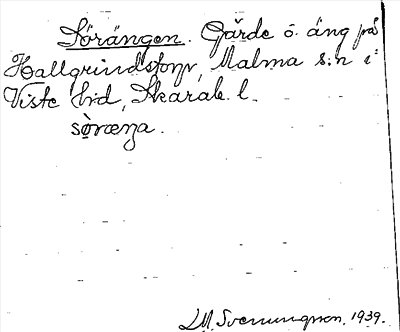 Sörängen. Gärde o. äng på
Hallgrindstorp, Malma s:n i
Viste hd, Skarab. l.
sörænga.
L.M. Svenungsson. 1939.